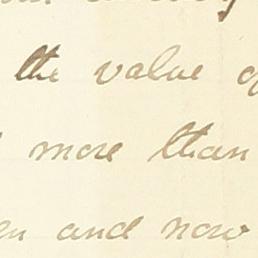 the value of
more than
and now